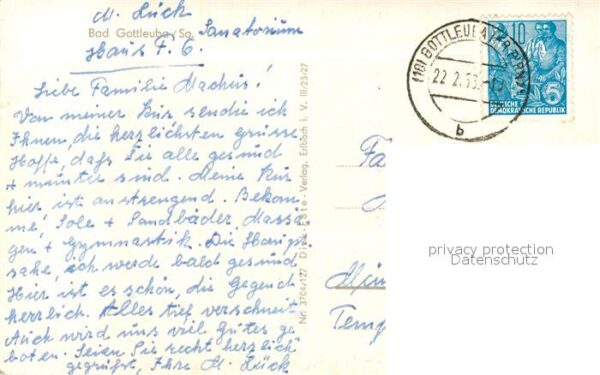 M. Lück
Bad Gottleuba/Sa. Sanatorium
Haus F. 6
Liebe Familie Machus!
Von meiner Kur sende ich
Ihnen, die herzlichsten Grüsse
Hoffe, dass Sie alle gesund
+ munter sind. Meine Kur
hier ist anstrengend. Bekom-
me, Sole + Sandbäder Massa-
gen + Gymnastik. Die Haupt-
sache, ich werde bald gesund
Hier ist es schön, die Gegend
herrlich. Alles tief verschneit
Auch wird uns viel Gutes ge
boten. Seien Sie recht herzlich
gegrüßt, Ihre M. Lück
Nr. 3704/127 Dick-Foto-Verlag, Erlbach i. V. III/23/27
(10) GOTTLEUBA (KR PIRNA)
22.2.
b
10
5
DEUTSCHE
DEMOKRATISCHE REPUBLIK
Fa
Temp
privacy protection
Datenschutz